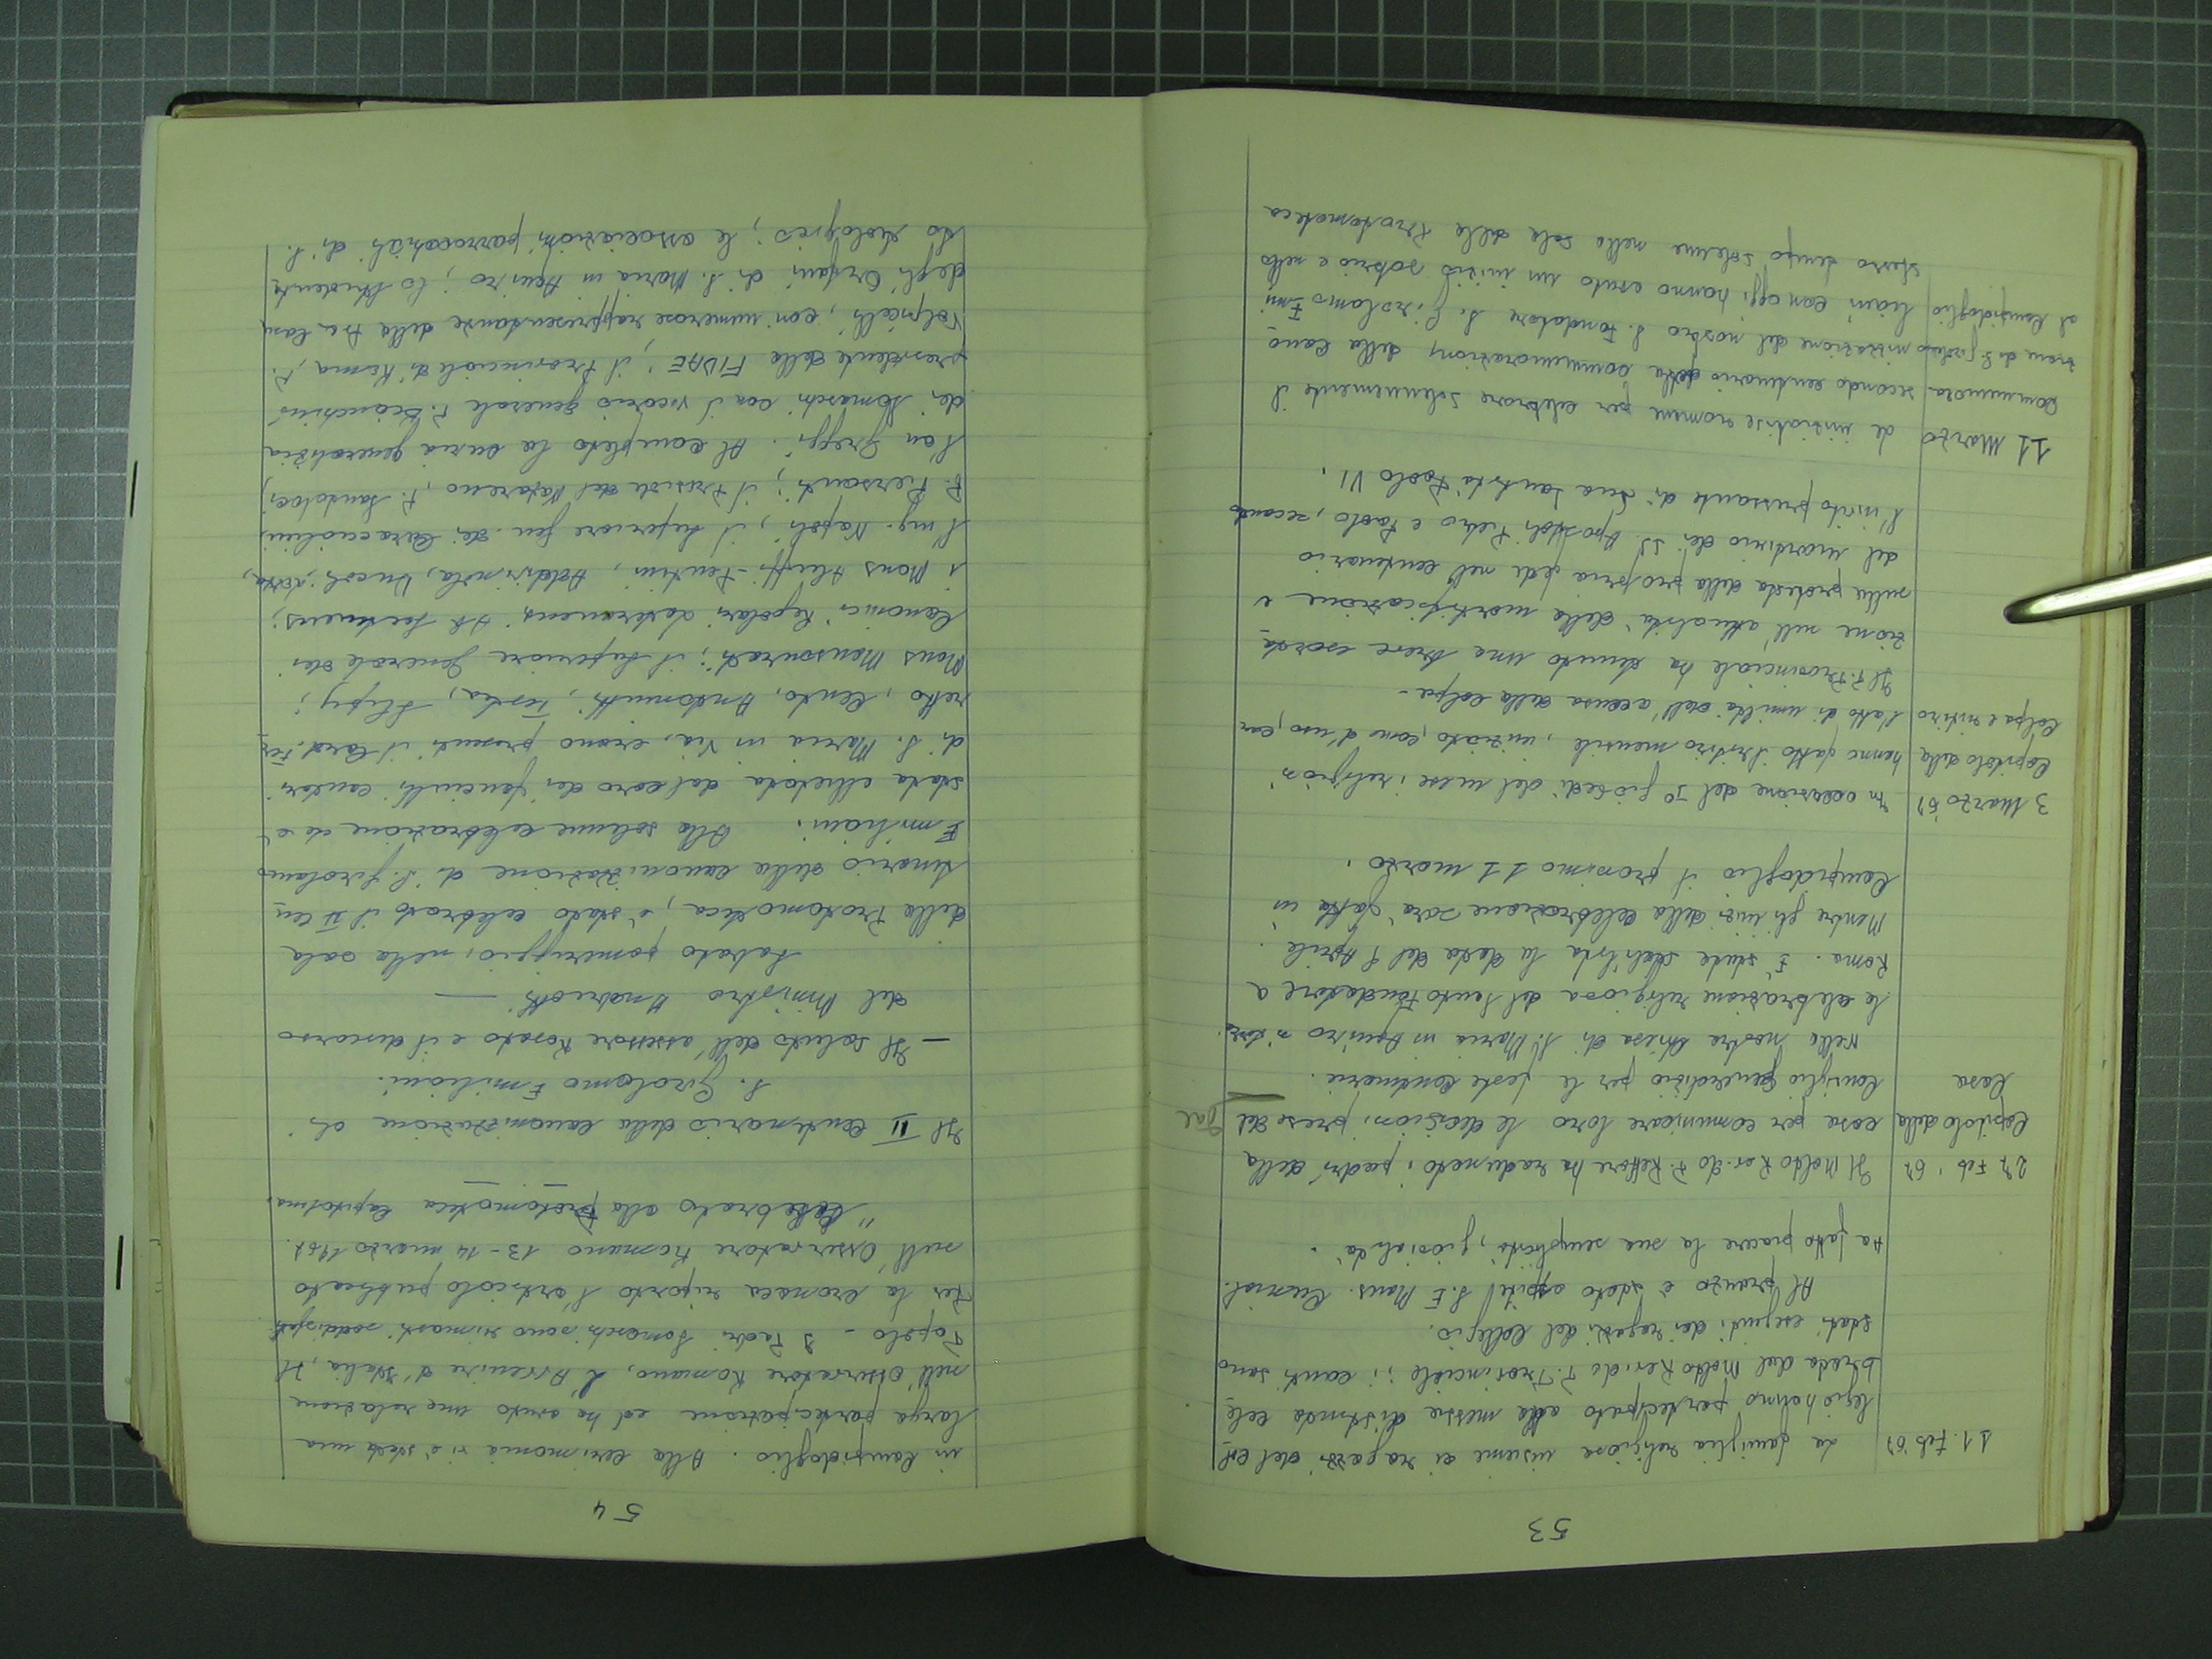 53
11. Feb '67 La famiglia religiosa insieme ai ragazzi del col
legio hanno partecipato alla messa distinta cele
brata dal Molto Rev.do P. Provinciale; i canti sono
stati eseguiti dai ragazzi del Collegio.
Al pranzo è stato ospite S. E. Mons. Cunial.
Ha fatto piacere la sua semplicità, giovialità.
27 Feb. '67 Il Molto Rev.do P. Rettore ha radunato i padri della
Capitolo della casa per comunicare loro le decisioni prese dal
Casa Consiglio generalizio per le feste centenarie.
Nella nostra chiesa di S. Maria in Aquiro si terrà
la celebrazione religiosa del Santo Fondatore a
Roma. È stata stabilita la data del 8 Aprile.
Mentre gli inizi della celebrazione sarà fatta in
Campidoglio il prossimo 11 marzo.
3 Marzo '67 In occasione del I° giovedì del mese i religiosi
Capitolo della hanno fatto il ritiro mensile, iniziato, come d'uso, con
Colpa e ritiro l'atto di umiltà dell'accusa della colpa.
Il P. Provinciale ha tenuto una breve esorta
zione sull'attualità della mortificazione e
sulla protesta della propria fede nel centenario
del martirio dei SS. Apostoli Pietro e Paolo, secondo
l'invito pressante di Sua Santità Paolo VI.
11 Marzo Le iniziative romane per celebrare solennemente il
Commemora- secondo centenario della commemorazione della cano
zione di S. Girolamo nizzazione del nostro S. Fondatore S. Girolamo Emi
al Campidoglio liani con oggi hanno avuto un inizio sobrio e nello
stesso tempo solenne nella sala della Protomoteca
54
in Campidoglio. Alla cerimonia vi è stata una
larga partecipazione ed ha avuto una relazione
nell'Osservatore Romano, L'Avvenire d'Italia, Il
Popolo - I Padri Somaschi sono rimasti soddisfatti
Per la cronaca riporto l'articolo pubblicato
nell'Osservatore Romano 13-14 marzo 1967.
"Celebrato alla Protomoteca Capitolina
Il II Centenario della canonizzazione di
S. Girolamo Emiliani.
— Il saluto dell'assessore Rosato e il discorso
del Ministro Andreotti. —
Sabato pomeriggio, nella sala
della Protomoteca, è stato celebrato il II Cen
tenario della canonizzazione di S. Girolamo
Emiliani. Alla solenne celebrazione che è
stata allietata dal coro dei fanciulli cantori
di S. Maria in Via, erano presenti il Card. Fer
retto, Cento, Antoniutti, Testa, Slipyj;
Mons Mansourati; il Superiore Generale dei
Canonici Regolari Lateranensi Ab.
i Mons -Pentini, Ducoli,
l'ing. Napoli; il Superiore Gen. dei Caracciolini,
P. Piersanti; il Preside del Nazareno, P. Sandoloci,
l'on Greggi. Al completo la curia generalizia
dei Somaschi con il vicario generale P. Bianchini
presidente della FIDAE; il Provinciale di Roma, P.
Volpicelli, con numerose rappresentanze della Pia Casa
degli Orfani di S. Maria in Aquiro; lo studenta
to teologico; le associazioni parrocchiali di S.
Gal